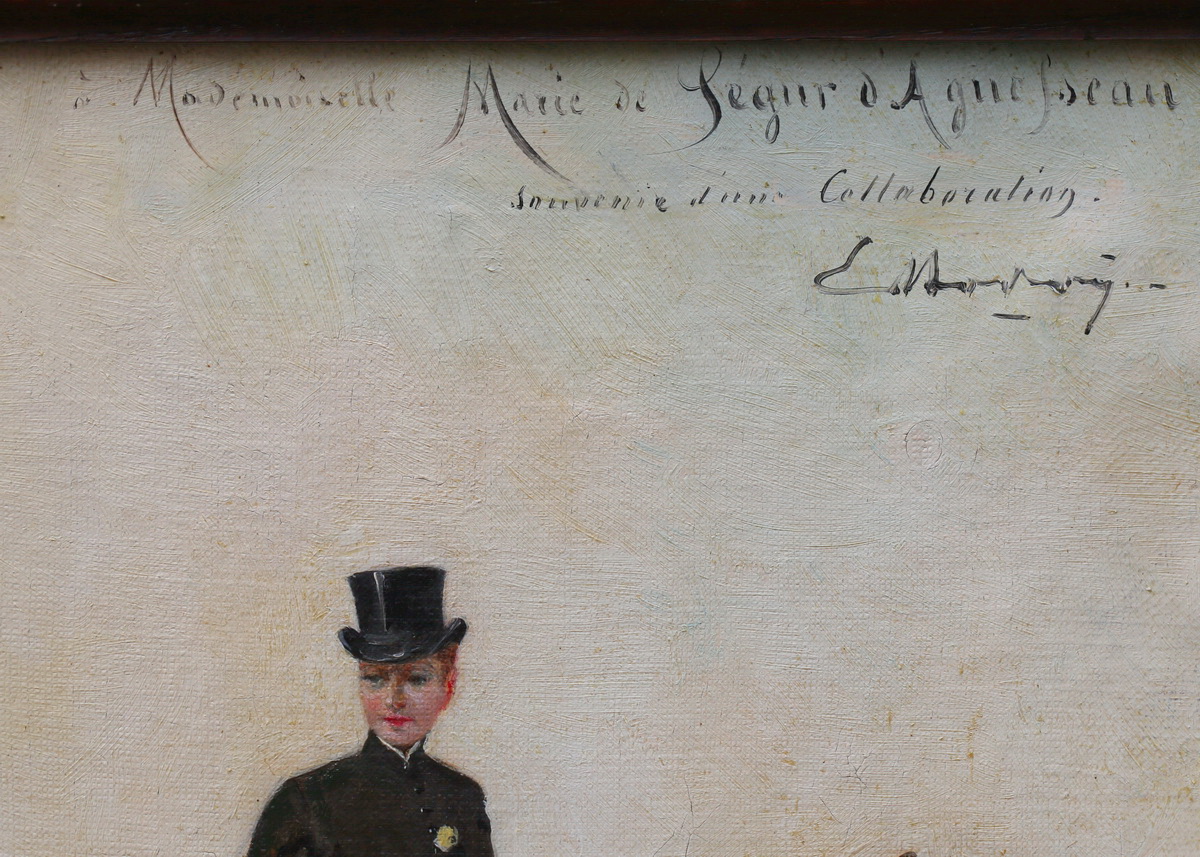 à Mademoiselle Marie de Ségur d'Aguesseau
souvenir d'une Collaboration.